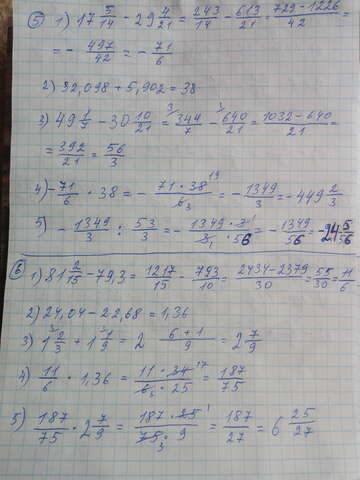 ⑤ 1) 17 5/14 - 29 4/21 = 243/14 - 613/21 = 729-1226/42 =
= - 497/42 = - 71/6
2) 32,098 + 5,902 = 38
3) 49 1/7 - 30 10/21 = 344/7 - 640/21 = 1032-640/21 =
= 392/21 = 56/3
4) - 71/6 · 38 = - 71·38 19/6 3 = - 1349/3 = - 449 2/3
5) - 1349/3 : 53/3 = - 1349·3 1/3 1·56 = - 1349/56 = - 24 5/56
⑥ 1) 81 2/15 - 79,3 = 1217/15 - 793/10 = 2434-2379/30 = 55/30 = 11/6
2) 24,04 - 22,68 = 1,36
3) 1 2/3 + 1 1/9 = 2 6+1/9 = 2 7/9
4) 11/6 · 1,36 = 11·34 17/6 3·25 = 187/75
5) 187/75 · 2 7/9 = 187·25 1/75 3·9 = 187/27 = 6 25/27